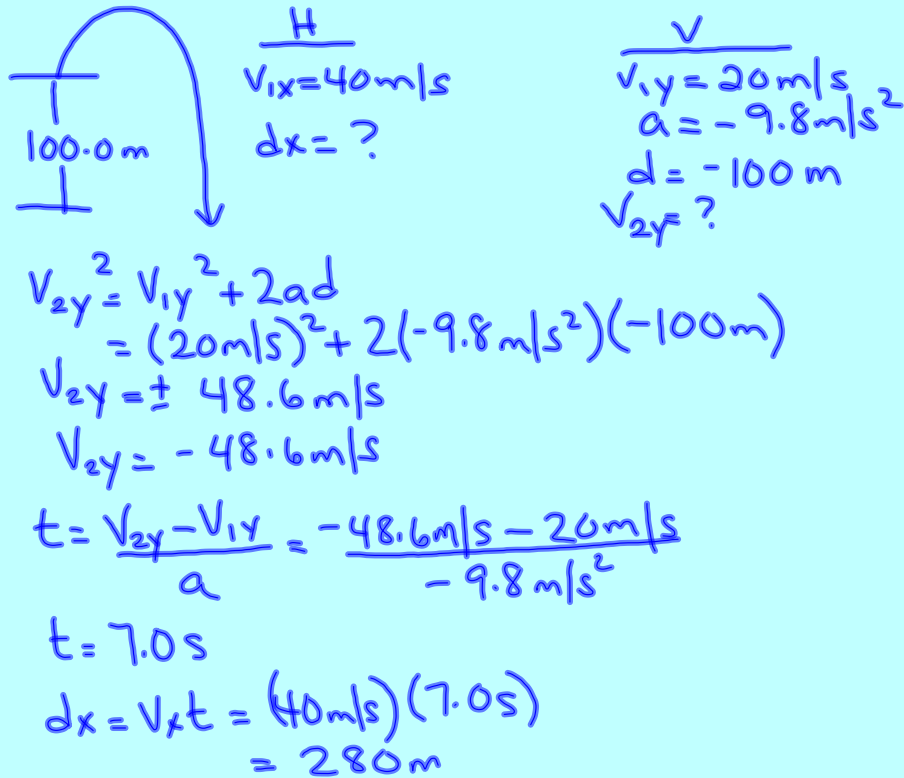 H
V₁ₓ=40m/s
dx=?
100.0m
V
V₁y=20m/s
a=-9.8m/s²
d=-100m
V₂y=?
V₂y²=V₁y²+2ad
=(20m/s)²+2(-9.8m/s²)(-100m)
V₂y=± 48.6m/s
V₂y=-48.6m/s
t=V₂y-V₁y/a = -48.6m/s-20m/s/-9.8m/s²
t=7.0s
dx=Vₓt=(40m/s)(7.0s)
=280m